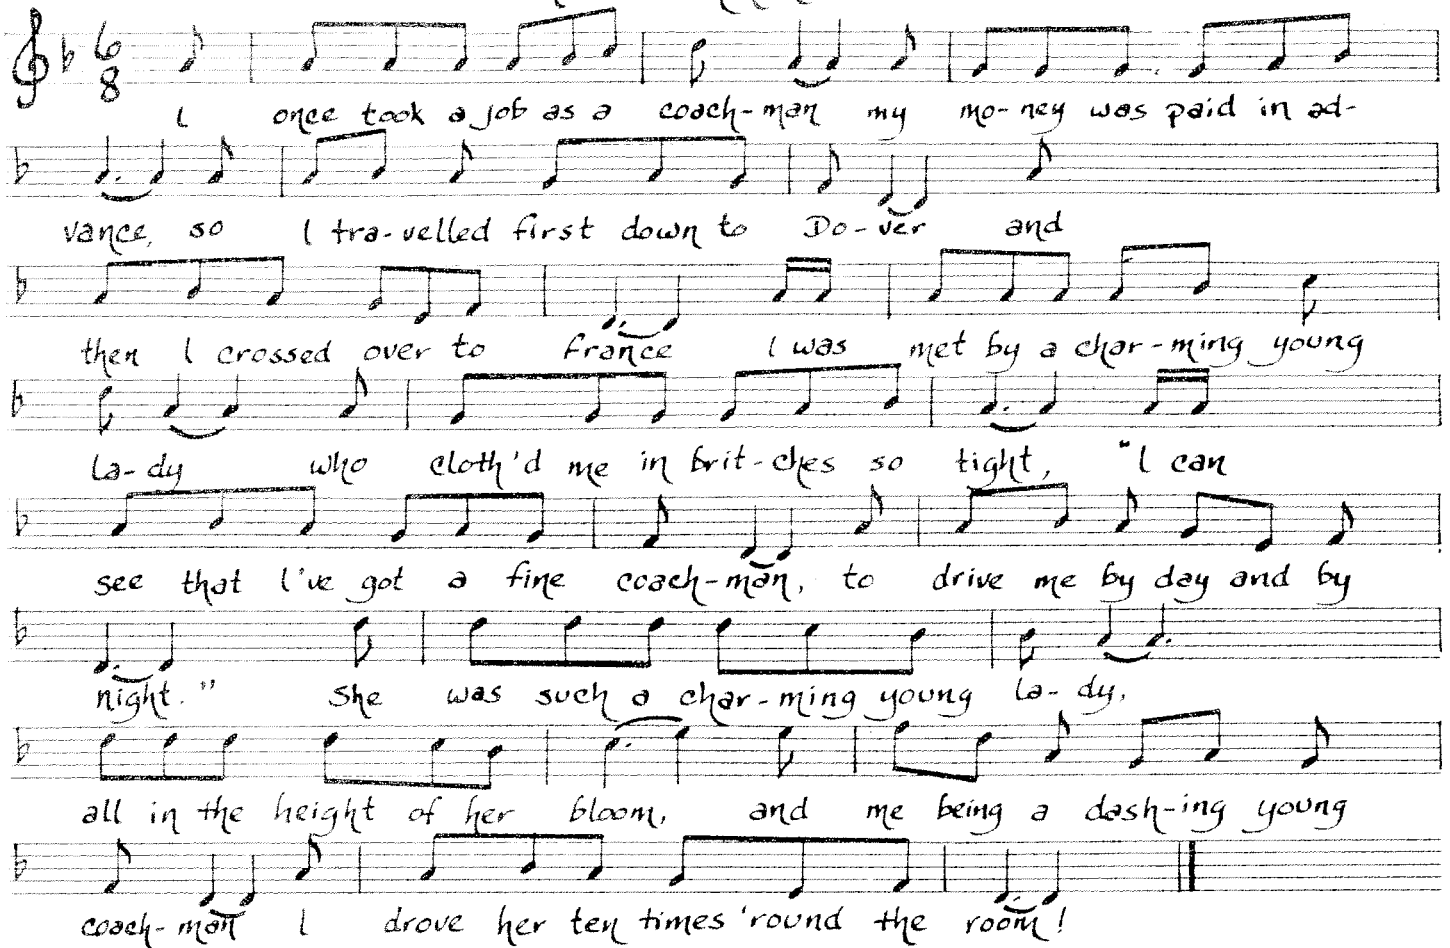 6
8
I once took a job as a coach-man my mo-ney was paid in ad-
vance, so I tra-velled first down to Do-ver and
then I crossed over to france I was met by a char-ming young
la-dy who cloth'd me in brit-ches so tight, "I can
see that I've got a fine coach-man, to drive me by day and by
night." She was such a char-ming young la-dy,
all in the height of her bloom, and me being a dash-ing young
coach-man I drove her ten times 'round the room!